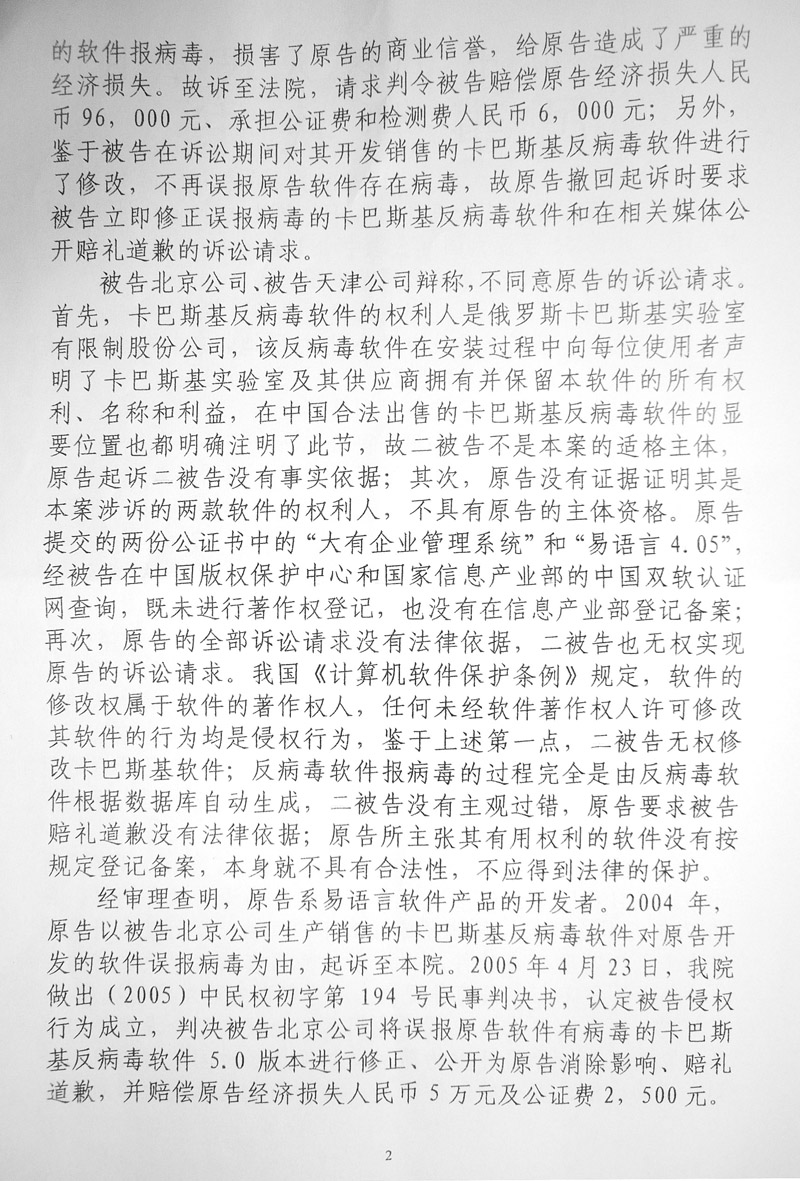 的软件报病毒，损害了原告的商业信誉，给原告造成了严重的
经济损失。故诉至法院，请求判令被告赔偿原告经济损失人民
币 96，000 元、承担公证费和检测费人民币 6，000 元；另外，
鉴于被告在诉讼期间对其开发销售的卡巴斯基反病毒软件进行
了修改，不再误报原告软件存在病毒，故原告撤回起诉时要求
被告立即修正误报病毒的卡巴斯基反病毒软件和在相关媒体公
开赔礼道歉的诉讼请求。
被告北京公司、被告天津公司辩称，不同意原告的诉讼请求。
首先，卡巴斯基反病毒软件的权利人是俄罗斯卡巴斯基实验室
有限制股份公司，该反病毒软件在安装过程中向每位使用者声
明了卡巴斯基实验室及其供应商拥有并保留本软件的所有权
利、名称和利益，在中国合法出售的卡巴斯基反病毒软件的显
要位置也都明确注明了此节，故二被告不是本案的适格主体，
原告起诉二被告没有事实依据；其次，原告没有证据证明其是
本案涉诉的两款软件的权利人，不具有原告的主体资格。原告
提交的两份公证书中的“大有企业管理系统”和“易语言 4.05”，
经被告在中国版权保护中心和国家信息产业部的中国双软认证
网查询，既未进行著作权登记，也没有在信息产业部登记备案；
再次，原告的全部诉讼请求没有法律依据，二被告也无权实现
原告的诉讼请求。我国《计算机软件保护条例》规定，软件的
修改权属于软件的著作权人，任何未经软件著作权人许可修改
其软件的行为均是侵权行为，鉴于上述第一点，二被告无权修
改卡巴斯基软件；反病毒软件报病毒的过程完全是由反病毒软
件根据数据库自动生成，二被告没有主观过错，原告要求被告
赔礼道歉没有法律依据；原告所主张其有用权利的软件没有按
规定登记备案，本身就不具有合法性，不应得到法律的保护。
经审理查明，原告系易语言软件产品的开发者。2004 年，
原告以被告北京公司生产销售的卡巴斯基反病毒软件对原告开
发的软件误报病毒为由，起诉至本院。2005 年 4 月 23 日，我院
做出（2005）中民权初字第 194 号民事判决书，认定被告侵权
行为成立，判决被告北京公司将误报原告软件有病毒的卡巴斯
基反病毒软件 5.0 版本进行修正、公开为原告消除影响、赔礼
道歉，并赔偿原告经济损失人民币 5 万元及公证费 2，500 元。
2